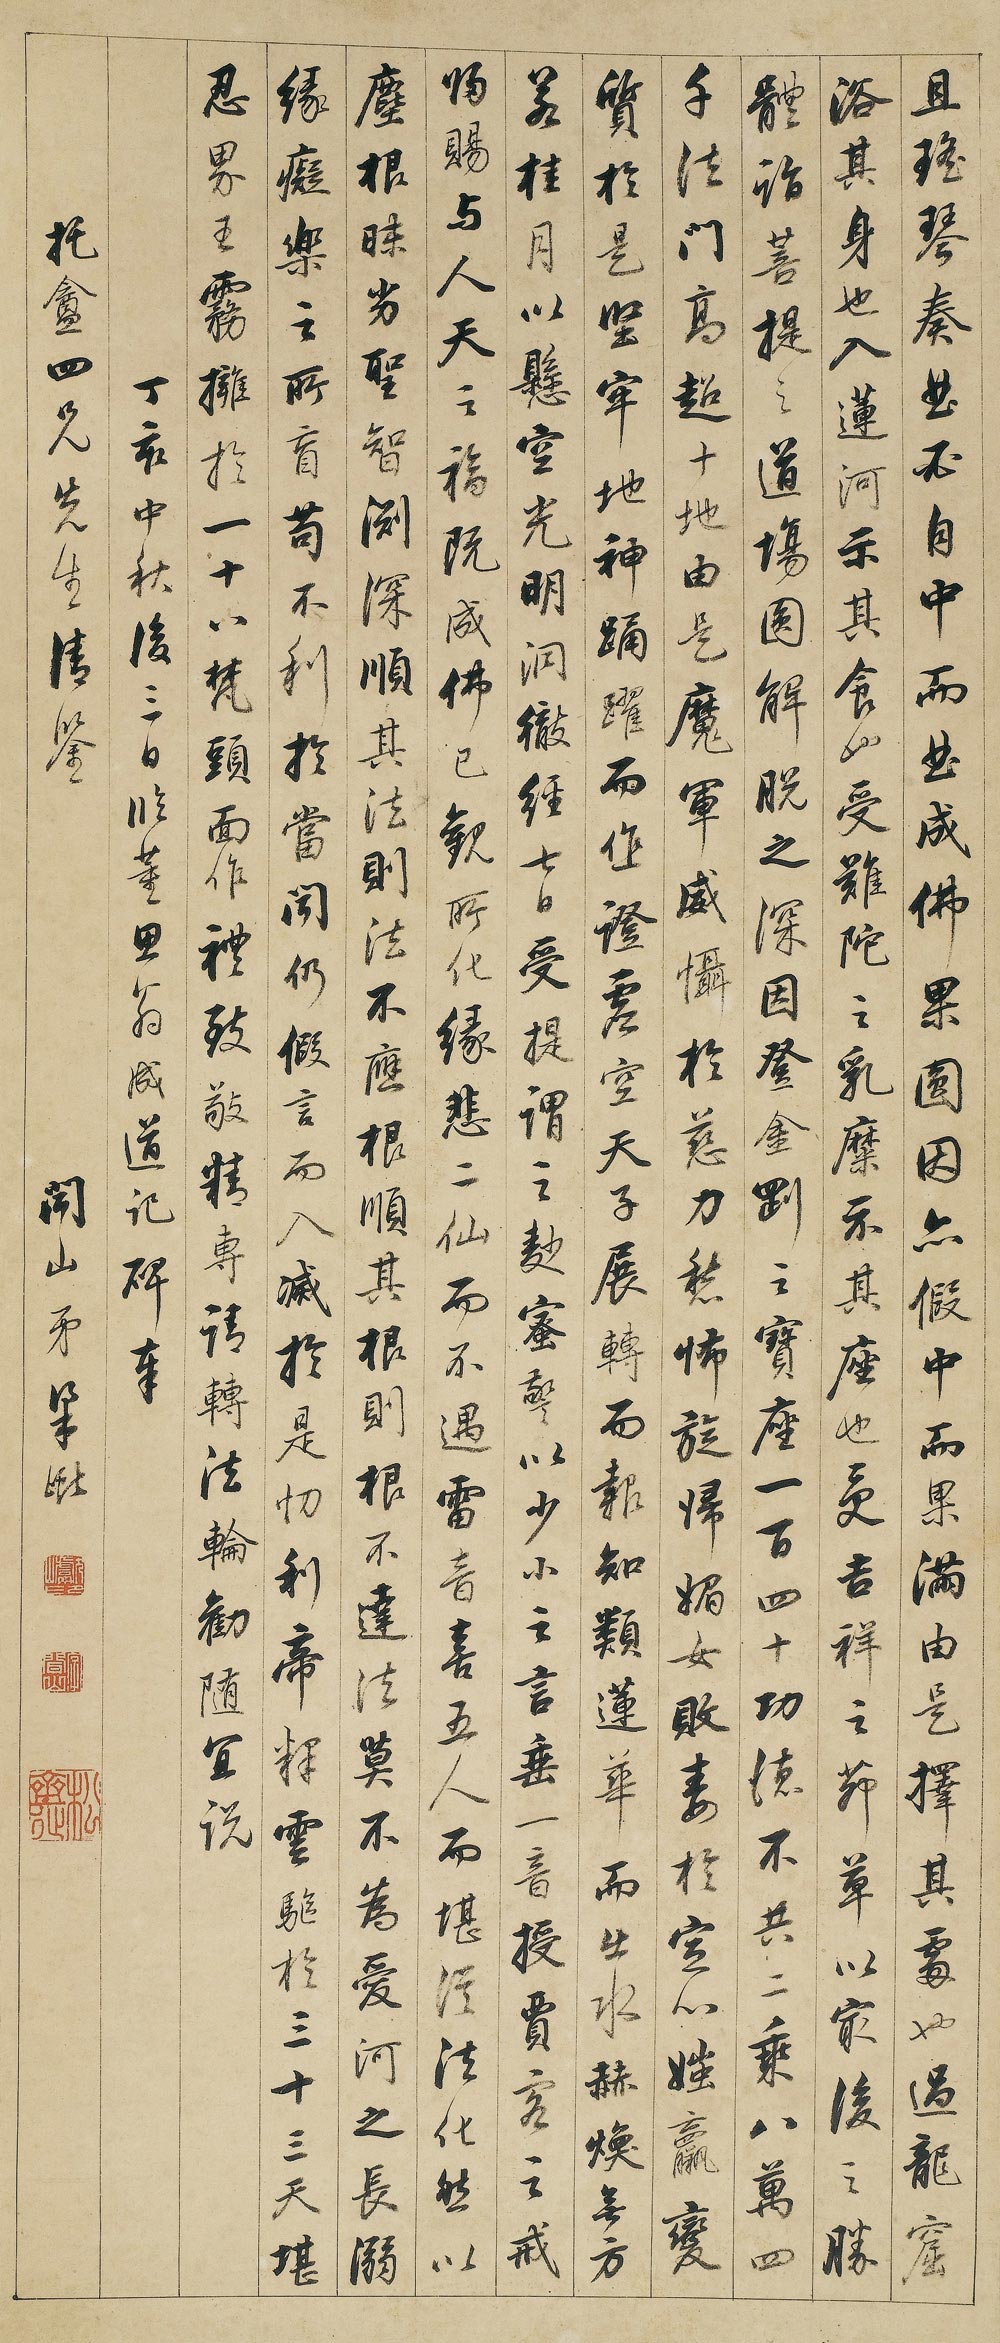 且瑤琴奏曲不自中而曲成佛果圓因亦假中而果滿由是擇其處也過龍窟
浴其身也入蓮河示其食也受難陀之乳糜示其座也受吉祥之茆草以最後之勝
體詣菩提之道場圓解脫之深因登金剛之寶座一百四十功德不共二乘八萬四
千法門高超十地由是魔軍威懾於慈力愁怖旋歸媚女敗毒於定心媸羸變
質於是堅牢地神踊躍而作證虛空天子展轉而報知類蓮華而出水赫煥無方
若桂月以懸空光明洞徹經七日受提謂之麨蜜警以少小之言垂一音授賈客之戒
歸賜与人天之福既成佛已觀所化緣悲二仙而不遇雷音喜五人而堪從法化然以
塵根昧劣聖智淵深順其法則法不應根順其根則根不達法莫不為愛河之長溺
緣癡樂之所盲苟不利於當聞仍假言而入滅於是忉利帝釋雲駈於三十三天堪
忍界王霧擁於一十八梵頭面作禮致敬精專請轉法輪勸隨宜說
丁亥中秋後三日臨董思翁成道記碑奉
托盦四兄先生清鑒
聞山弟梁巘